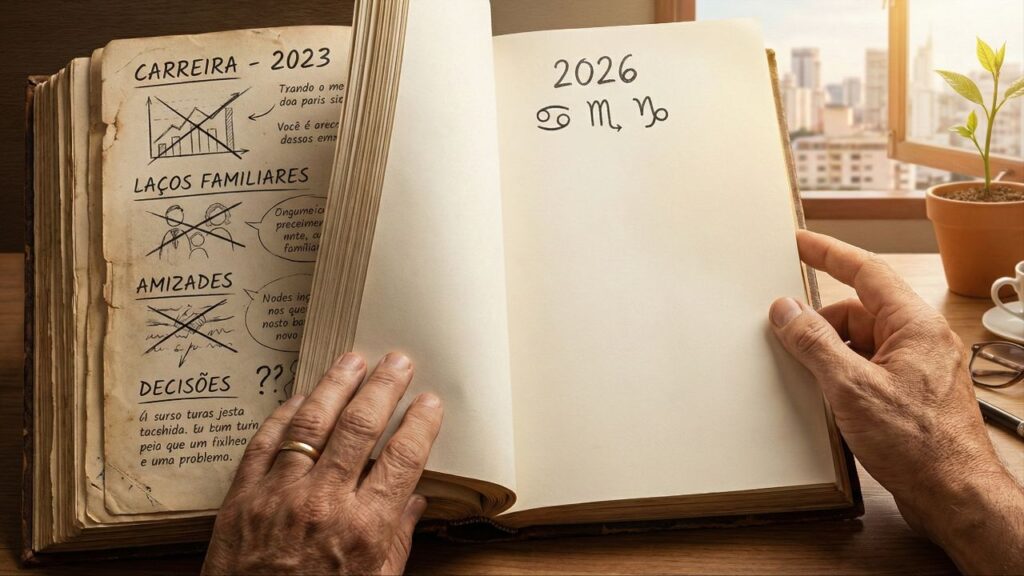 CARREIRA - 2023
Trando o me
doa paris si
Você é
dassos em
LAÇOS FAMILIARES
Ongumeio
preceimen
nnte, a
familia
AMIZADES
Nodes in
nos que
nosto ba
novo
DECISÕES ??
surso turas jesta
tacshida. Eu bum turn
peio que um fixlheo
e uma problemo.
2026
♋ ♏ ♑